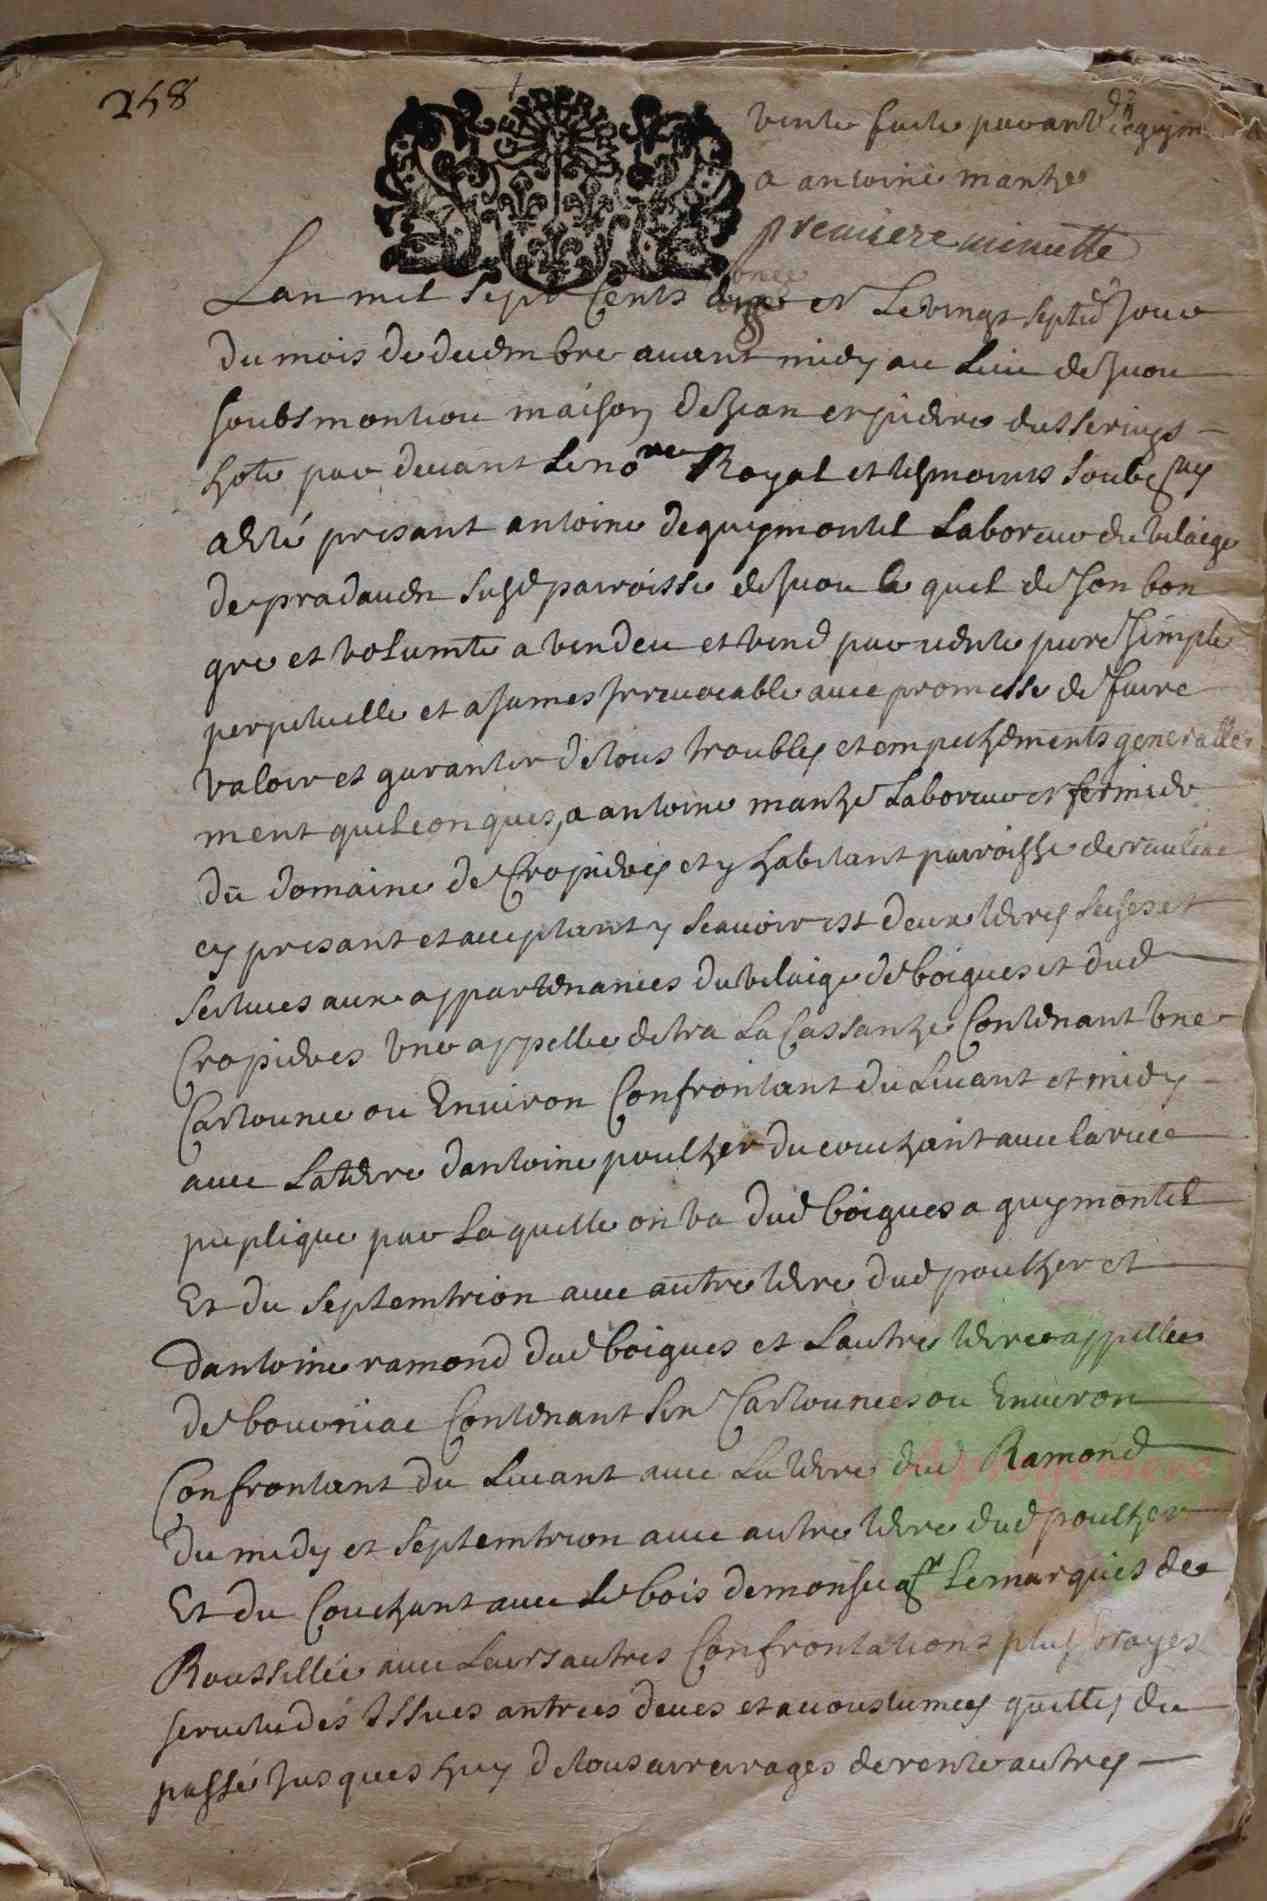 248
GEN DE R
vente faite par ant dequym
a antoine mantze
premiere minutte
Lan mil sept Cents onze et Le vingt septie Jour
du mois de decembre avant midy au Lieu de Juou
soubs montiou maison de Jean et pierre dusserieys
hote par devant Le nore Royal et tesmoins soubz snes
a esté presant antoine deguymontel Laboreur du vilaige
de pradaven susd parroisse de Juou le quel de son bon
gre et volumte a vendeu et vend par vente pure simple
perpetuelle et a James Irrevocable avec promesse de faire
valoir et garantir de tous troubles et empechements generalle
ment quelconques, a antoine mantze Laboreur et fermier
du domaine de Cropieres et y habitant parroisse de rauliac
cy presant et acceptant y scavoir est deux terres sises et
scituees aux appartenances du vilaige de boigues et dud
Cropieres une appellee detra La Cassantze Contenant une
Cartounee ou Environ Confrontant du Levant et midy
avec La terre dantoine poultzer du couchant avec la rue
puplique par La quelle on va dud boigues a guymontel
Et du septemtrion avec autre terre dud poultzer et
dantoine ramond dud boigues et Lautre terre appellee
de bouvniac Contenant six Cartounees ou Environ
Confrontant du Levant avec La terre dud Ramond
du midy et septemtrion avec autre terre dud poultzer
Et du Couchant avec le bois de monsieur Le marquis de
Roussillie avec Leurs autres Confrontations plus vrayes
servitudes Issues antrees deues et acoustumees quittes du
passé Jusques huy de tous arrerages de rente autres